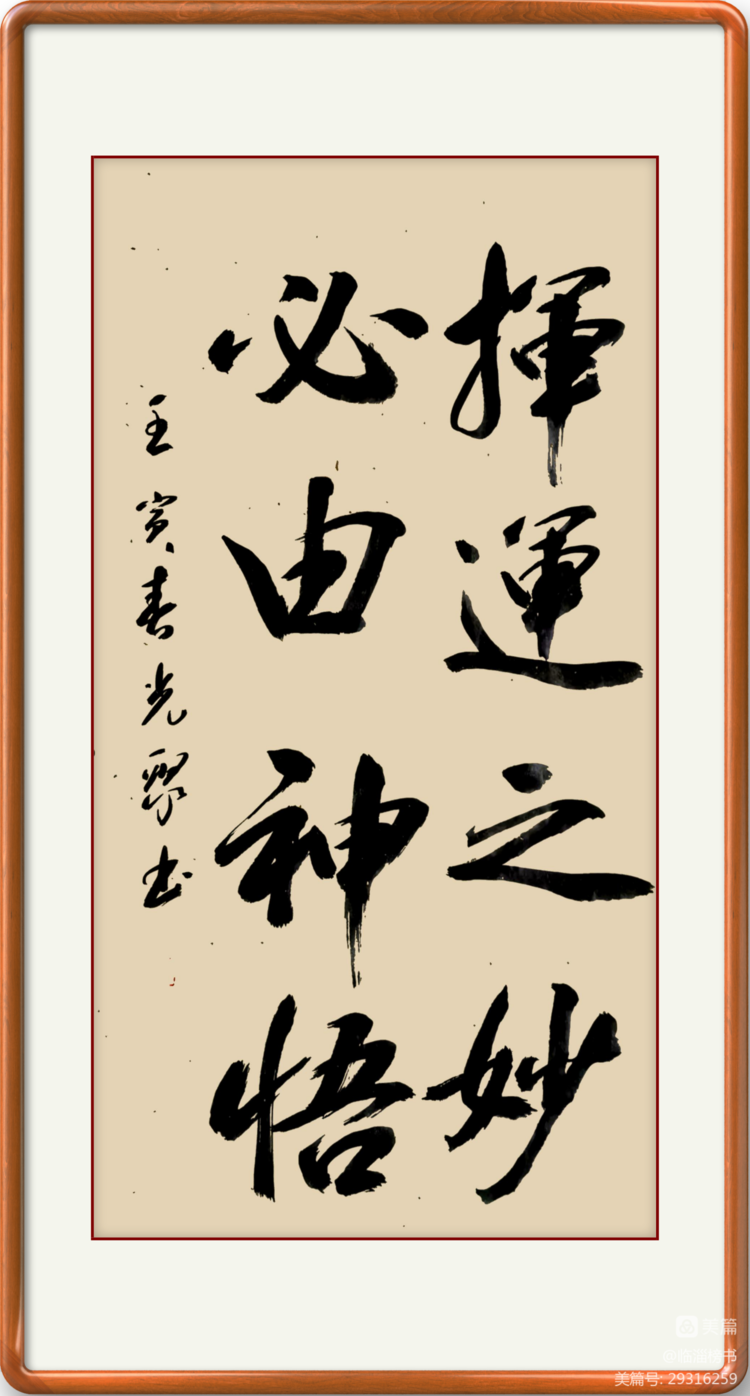 揮運之妙
必由神悟
壬寅春光聚书
美篇
美篇号: 29316259